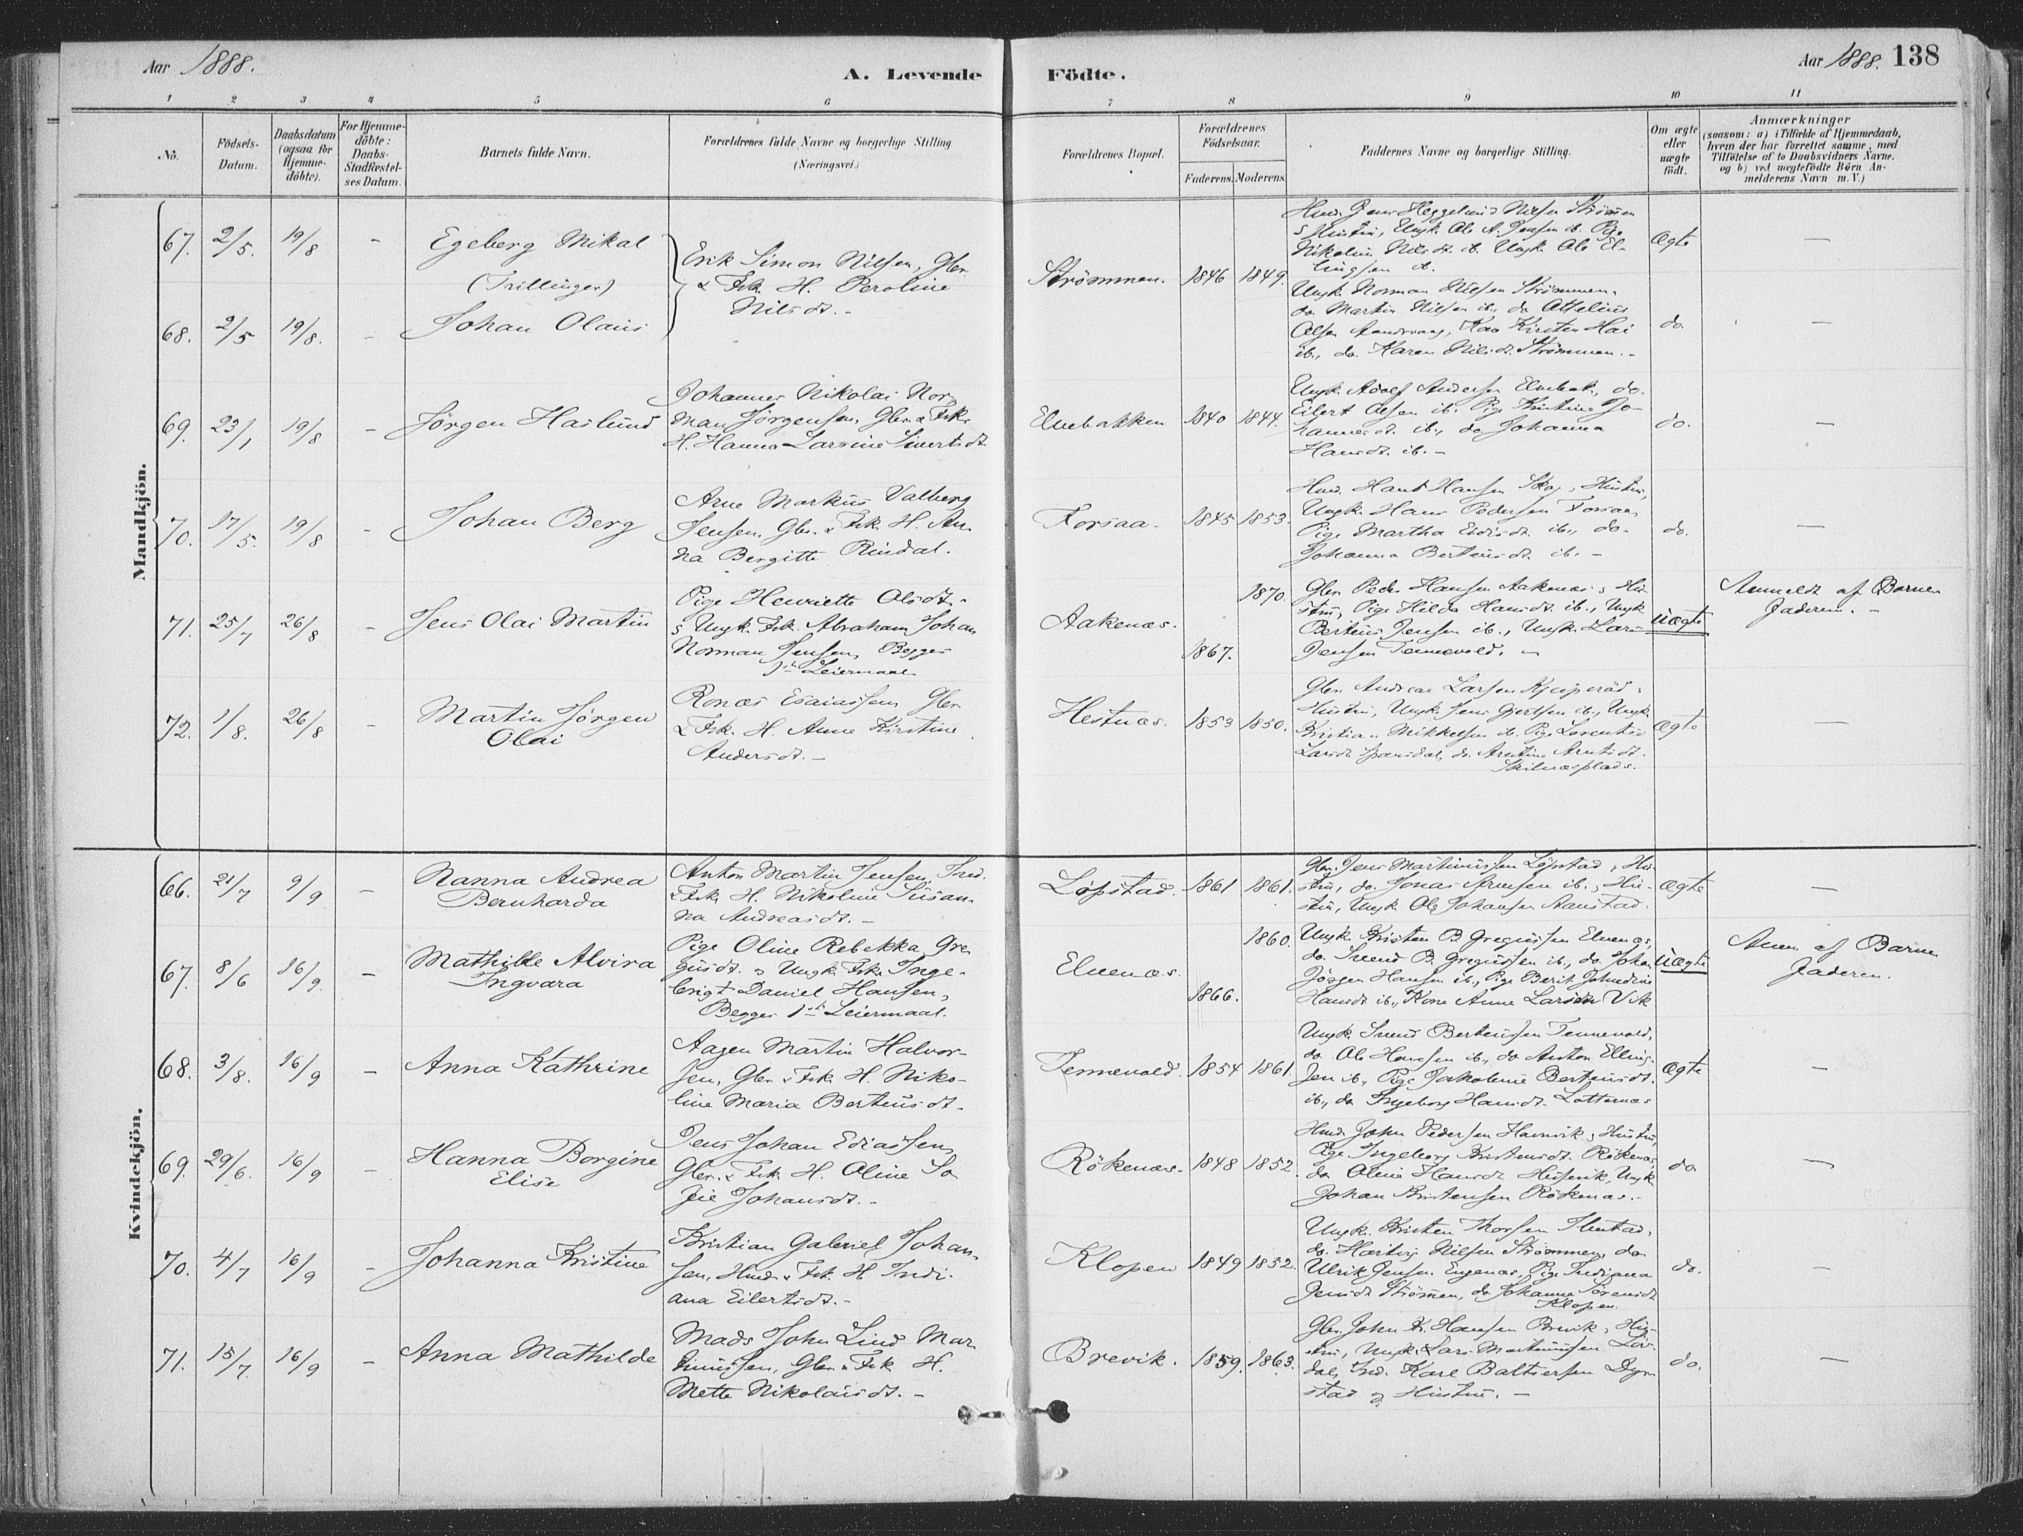 Aar 1888.
A. Levende
Födte.
Aar 1888. 138
1 2 3 4 5 6 7 8 9 10 11
No.
Födsels-
Datum.
Daabsdatum
(ogsaa for
Hjemme-
döbte).
For Hjemme-
döbte:
Daabs-
Stadfæstel-
ses Datum.
Barnets fulde Navn.
Forældrenes fulde Navne og borgerlige Stilling
(Næringsvei.)
Forældrenes Bopæl.
Forældrenes
Födselsaar.
Faderens. Moderens.
Faddernes Navne og borgerlig Stilling.
Om ægte
eller
uægte
født.
Anmærkninger
(saasom: a) i Tilfælde af Hjemmedaab,
hvem der har forrettet samme, med
Tilföielse af to Daabsvidners Navne,
og b) ved uægtefödte Börn An-
melderens Navn m. V.)
Mandkjön.
67. 2/5. 19/8 - Egeberg Mikal
(Trillinger)
Erik Simon Nilsen, Gbr.
& Fsk. H. Peroline
Nilsdt.-
Strömmen. 1846 1849.
Hmd. Jens Heggelund Nilsen Strömmen
Nikoline Nilsdt. ib. Ungk. Ole El-
lingsen ib.
Ægte -
68. 2/5 19/8. - Johan Olaus
Ungk. Norman Nilsen Strömmen.
do Martin Nilsen ib., do Ottelius
Olsen Kirsten
ib., do. Karen Nilsdt. Strömmen.-
do -
69. 23/1 19/8 - Jørgen Haslund
Johannes Nikolai Nor-
man Jørgensen, Gbr. & Fsk.
H. Hanna Larsine Sivertsdt.
Elvebakken 1840 1844.
Ungk. Adolf Andersen Elvebak., do.
Eilert Olsen ib. Pige Kristine Jo-
hannesdt. ib., do Johanna
Hansdt. ib. -
do. -
70. 17/5. 19/8 - Johan Berg
Arne Markus Valberg
Jensen, Gbr. & Fsk. H. An-
na Bergitte Rindal.
Forsaa. 1845 1853.
Hmd. Hans Hansen Skog, Hustru,
Ungk. Hans Pedersen Forsaa,
Pige Martha ib., do.
Johanna Berteusdt. ib. -
do. -
71. 25/7 26/8 - Jens Olai Martin
Pige Henriette Olsdt.
s Ungk. Fsk. Abraham Johan
Norman Jensen, Begges
1ste Leiermaal.
Aakenæs. 1867. 1870.
Gbr. Peder Hansen Aakenæs, Hu-
stru, Pige Hilda Hansdt. ib., Ungk.
Berteus Jensen ib., Ungk. Lars
Jensen Tennevold. -
Uægte
Anmeldt af Barne-
faderen. -
72. 1/8. 26/8 - Martin Jørgen
Olai
Ronæs Esaiassen Gbr.
& Fsk. H. Anne Kirstine
Andersdt. -
Hestnæs. 1853 1850.
Gbr. Andreas Larsen
Hustru, Ungk. Jens Gjertsen ib., Ungk.
Kristian Mikkelsen ib. Pige Lorentse
Larsdt. Spansdal, do. Arntine Arntsdt.
Skilnæsplads.
Ægte -
Kvindekjön.
66. 21/7 9/9 - Nanna Andrea
Bernharda
Anton Martin Jensen, Ind.
& Fsk. H. Nikoline Susan-
na Andreasdt. -
Løpstad. 1861 1861.
Gbr. Jens Martinussen Løpstad, Hu-
stru, do. Jonas Arnesen ib., Hu-
stru, Ungk. Ole Johansen Aanstad.
Ægte -
67. 8/6 16/9. - Mathilde Alvira
Ingvara
Pige Oline Rebekka Gre-
gusdt. s Ungk. Fsk. Inge-
brigt Daniel Hansen,
Begges 1ste Leiermaal.
Elvenæs. 1866. 1860.
Ungk. Kristen B. Gregussen Elvenæs,
do. Svend B. Gregussen ib., do. Johan
Jörgen Hansen ib., Pige Berit
Hansdt. ib., Kone Anne Larsdtr Vik
Uægte
Anm. af Barne-
faderen.
68. 3/8. 16/9 - Anna Kathrine
Aagen Martin Halvor-
sen, Gbr. & Fsk. H. Niko-
line Maria Berteusdt.
Tennevold. 1854 1861.
Ungk. Svend Berteussen Tennevold,
do. Ole Hansen ib., do Anton Elling-
sen ib., Pige Jakobine Berteusdt.
ib., do Ingeborg Hansdt.
Ægte -
69. 29/6. 16/9 - Hanna Borgine
Elise
Jens Johan Ediassen,
Gbr. & Fsk. H. Oline So-
fie Johansdt. -
Rökenæs. 1848 1852.
Hmd. John Pedersen Havnvik, Hustru,
Pige Ingeborg Kristensdt. Rökenæs,
do Oline Hansdt. Husevik, Ungk.
Johan Kristensen Rökenæs. -
do -
70. 4/7 16/9 - Johanna Kristine
Kristian Gabriel Johan-
sen, Hmd. & Fsk. H. Indi-
ana Eilertsdt. -
Klopen 1849 1852.
Ungk. Kristen Thorsen
do. Hartvig Nilsen Strömmen, do
Ulrik Jensen Engenæs, Pige Indiana
Jensdt. Strömmen, do. Johanna Sörensdt.
Klopen.
do. -
71. 15/7. 16/9 - Anna Mathilde
Mads John Lind Mar-
tinussen, Gbr. & Fsk. H.
Mette Nikolaisdt. -
Brevik. 1859. 1863.
Gbr. John Kr. Hansen Brevik, Hu-
stru, Ungk. Lars Martinussen Løv-
dal, Ind. Karl Baltsersen
og Hustru. -
do. -